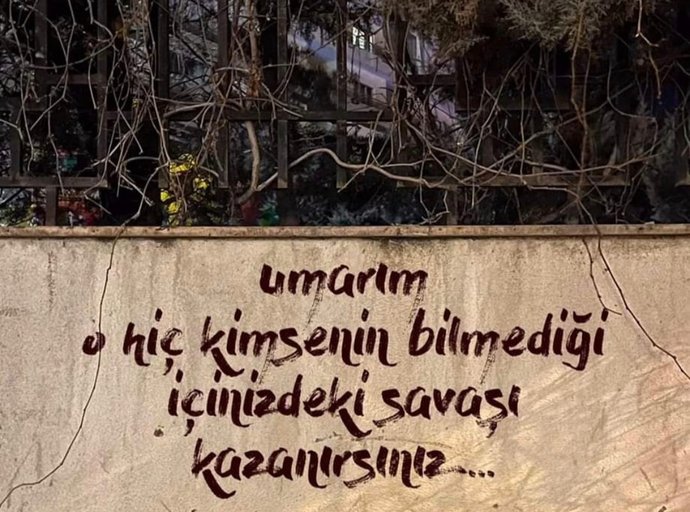 umarım
o hiç kimsenin bilmediği
içinizdeki savaşı
kazanırsınız...